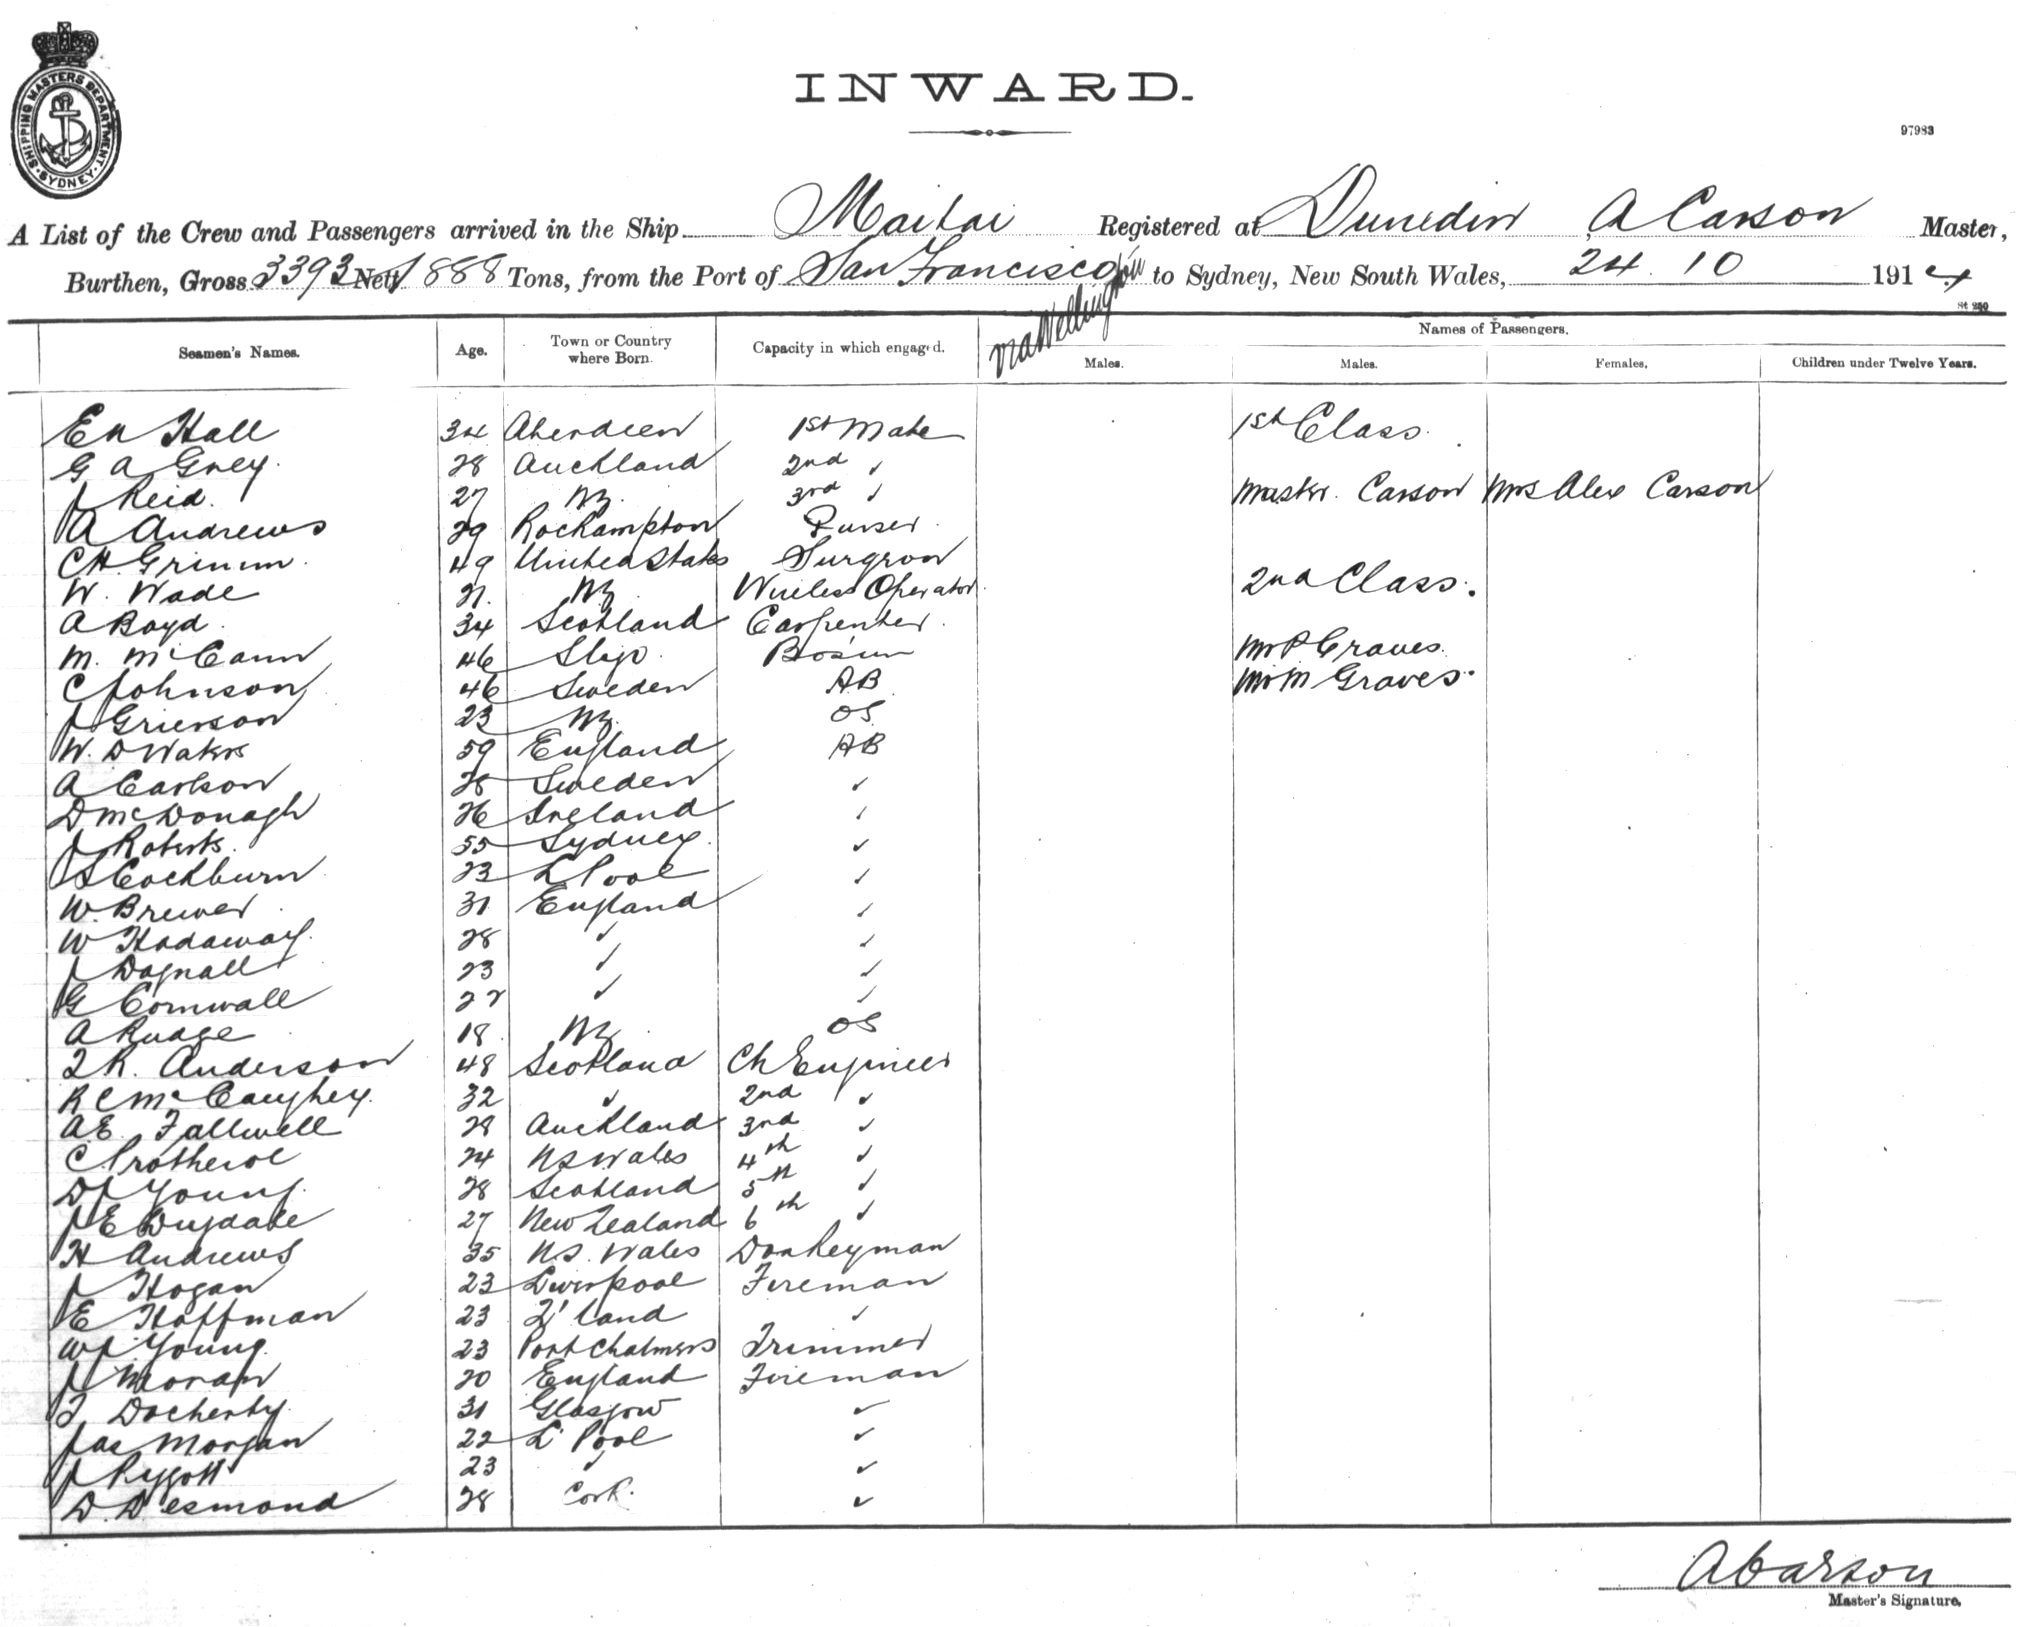 SHIPPING MASTERS DEPARTMENT
SYDNEY
INWARD.
97983
A List of the Crew and Passengers arrived in the Ship Maitai Registered at Dunedin A Carson Master,
Burthen, Gross 3393 Nett 1888 Tons, from the Port of San Francisco to Sydney, New South Wales, 24.10 1914
via Wellington
St 250
Names of Passengers.
Seamen's Names. Age. Town or Country where Born. Capacity in which engaged. Males. Males. Females. Children under Twelve Years.
Hall 34 Aberdeen 1st Mate 1st Class.
G A Grey. 28 Auckland 2nd "
J Reid. 27 NZ. 3rd " Master. Carson Mrs Alex Carson
A Andrews 29 Rockampton Purser
CH. Grimm. 49 United States Surgeon
W. Wade 21. NZ Wireless Operator. 2nd Class.
A Boyd. 34 Scotland Carpenter.
M. McCann 46 Sligo. Bosun Mr P Graves.
C Johnson 46 Sweden AB Mr M Graves.
J Grierson 23 NZ. OS
W. D Waters 59 England AB
A Carlson 28 Sweden "
D McDonagh 26 Ireland "
J Roberts. 55 Sydney. "
S Cockburn 23 L'Pool "
W. Brewer. 31 England "
W Hadaway. 28 " "
J Dagnall 23 " "
G Cornwall 22 " "
A Rudge 18. NZ OS
R. Anderson 48 Scotland Ch Engineer
R C McCaughey. 32 " 2nd "
A.E. Fallwell 28 Auckland 3rd "
C Protheroe 24 NS Wales 4th "
D J Young. 28 Scotland 5th "
J E Dugdale 27 New Zealand 6th "
H Andrews 35 NS. Wales Donkeyman
J Hogan 23 Liverpool Fireman
E Hoffman 23 Q'land "
W J Young. 23 Port Chalmers Trimmer
J Moran 20 England Fireman
T Docherty. 31 Glasgow "
Jas Morgan 22 L'Pool "
J Pygott 23 " "
D. Desmond 28 Cork. "
A Carson
Master's Signature.